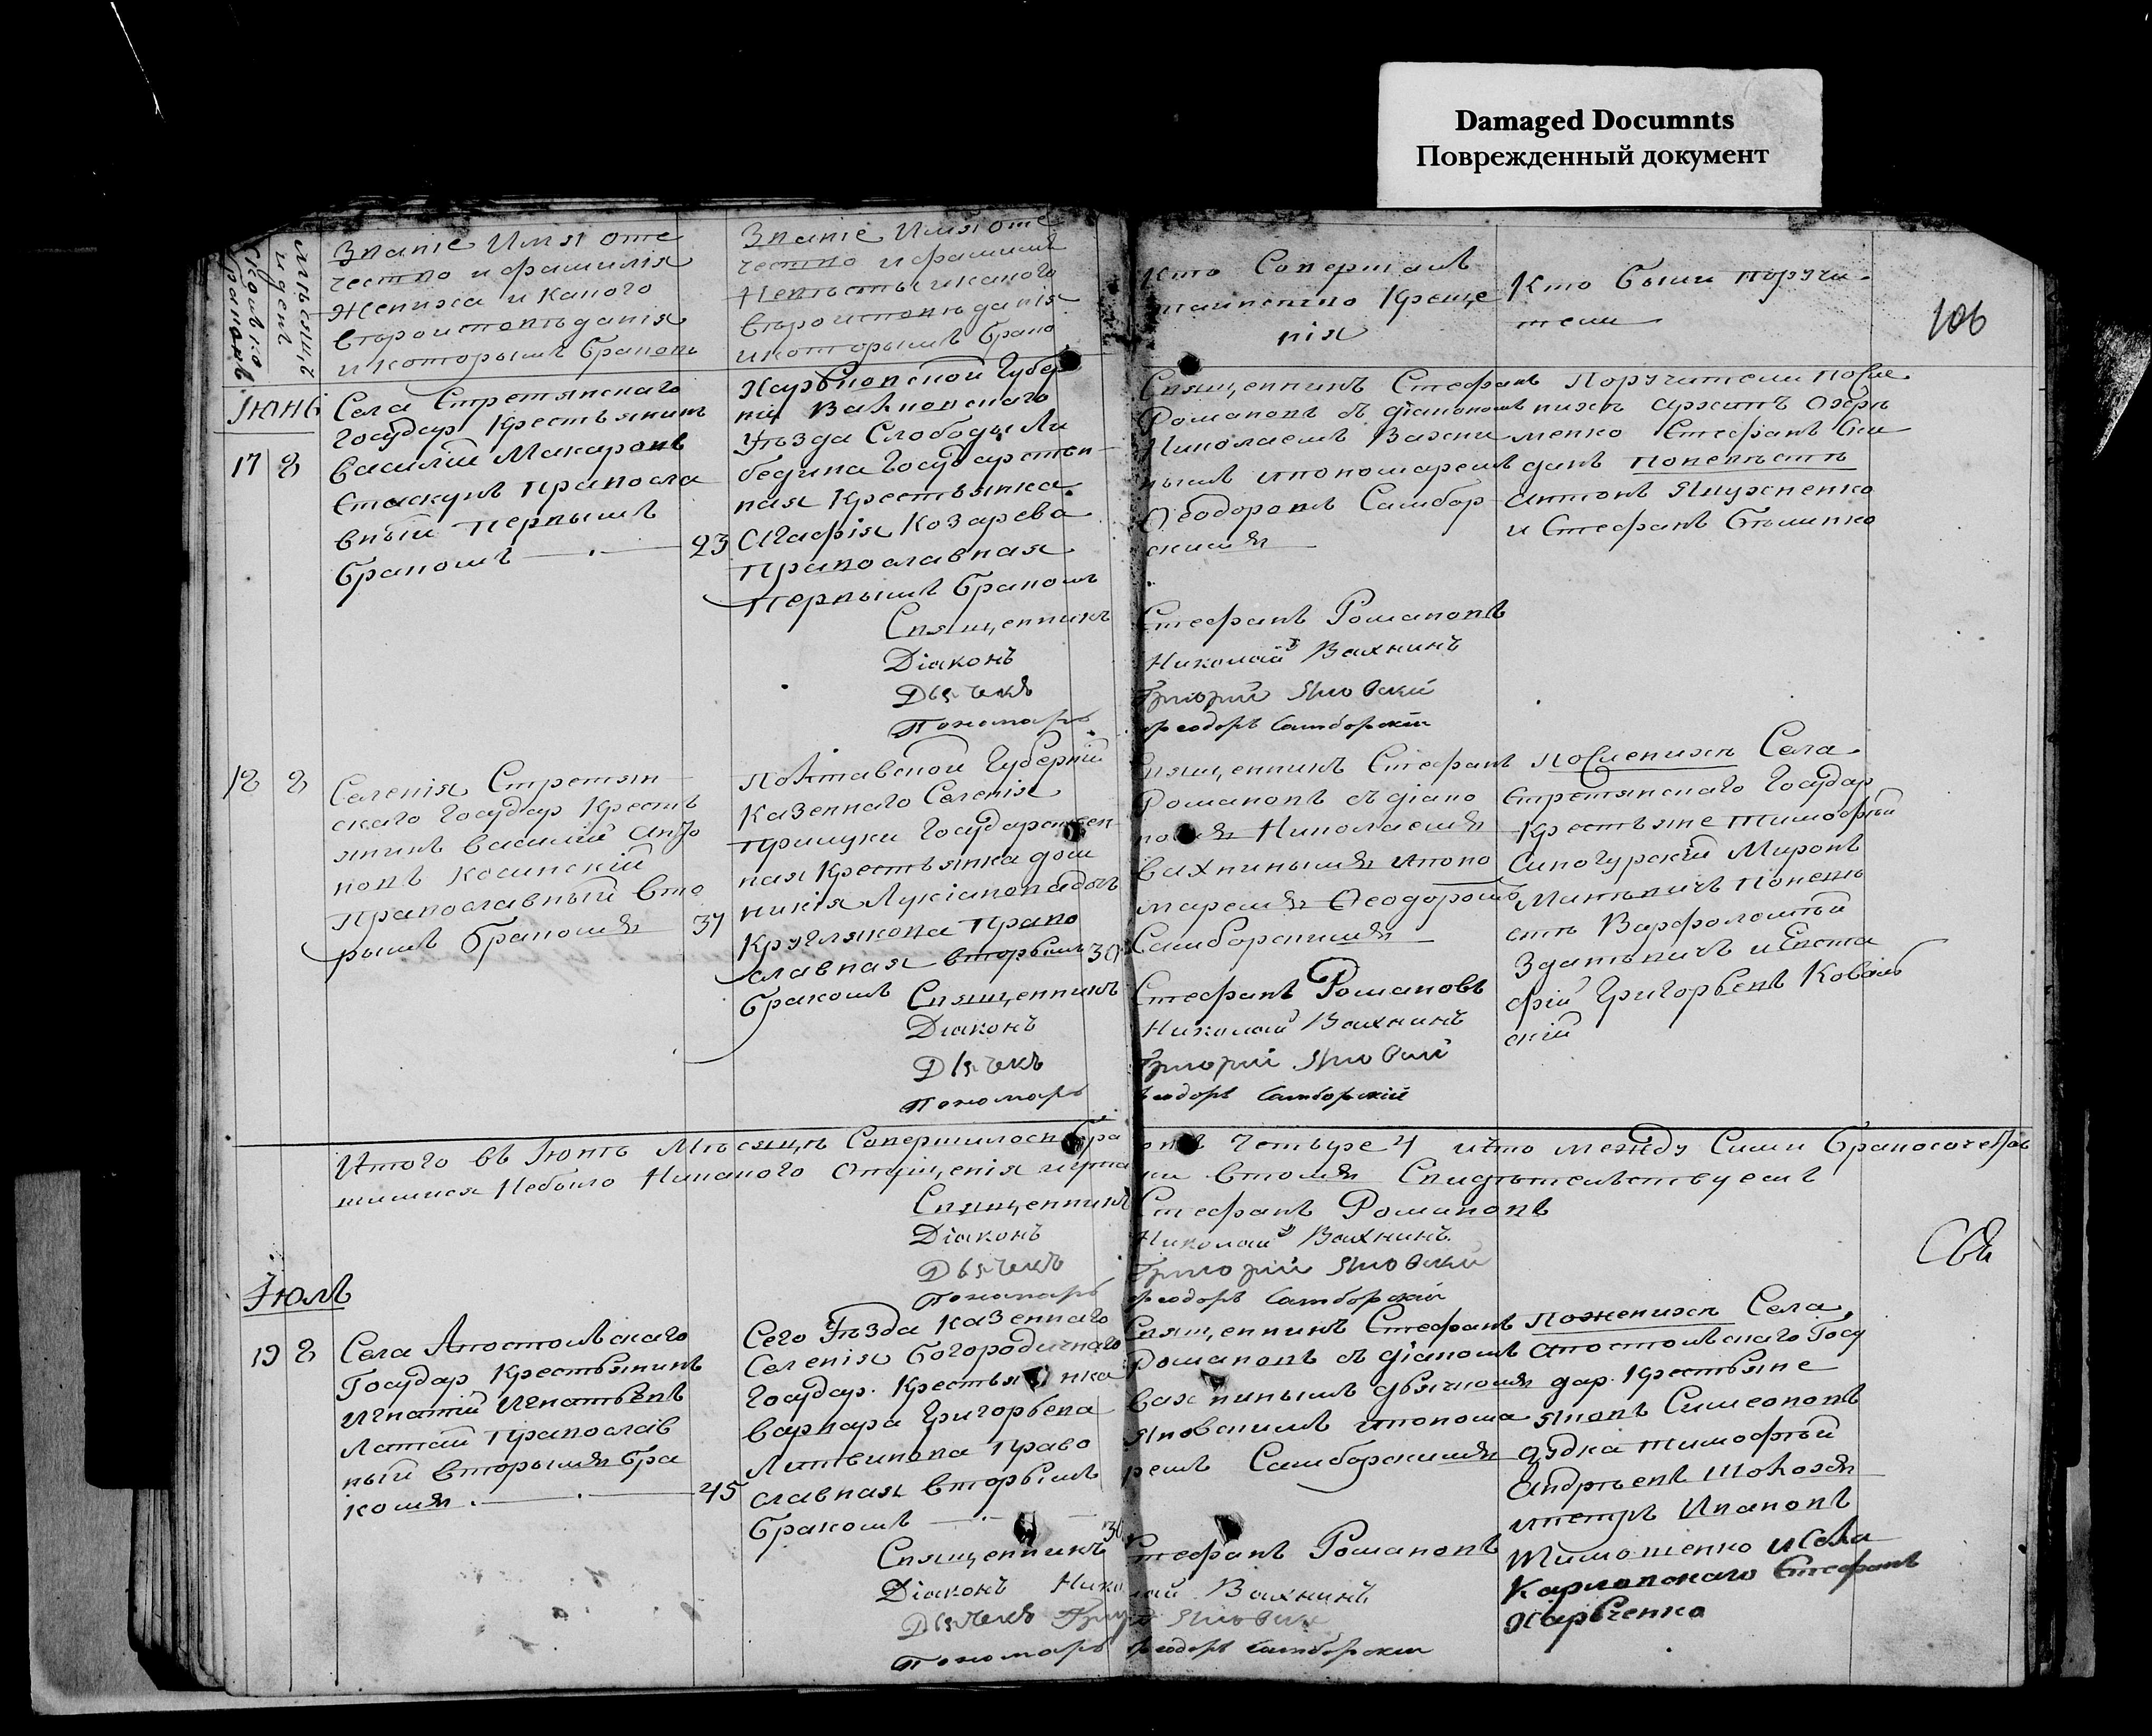 Damaged Documnts
Поврежденный документ
106
Сколько браковъ
Мѣсяцъ и день
Званіе Имя оте
чество и фамилія
Жениха и какого
вѣроисповѣданія
и которымъ бракомъ
Званіе Имя оте
чество и фамилія
Невѣсты и какого
вѣроисповѣданія
и которымъ брако
Кто Совершалъ
таинство Креще
нія
Кто были поручи
тели
Іюнь
17 8
Села Стретянскаго
Государ Крестьянинъ
Василій Макаровъ
Стаскунъ правосла
вный первымъ
бракомъ
23
Харьковской Губер
ніи Валковскаго
Уѣзда Слободы Ли
бедина Государствен
ная Крестьянка
Агафія Козарева
православная
первымъ бракомъ
Священникъ Стефанъ
Романовъ съ діакономъ
Николаемъ Вахни
нымъ и пономаремъ
Ѳеодоромъ Самбор
скимъ
Поручители по Же
нихѣ
Стефанъ
по невѣстѣ
Антонъ
и Стефанъ
Священникъ Стефанъ Романовъ
Діаконъ Николай Вахнинъ
Дьячекъ Григорій Яновскій
Пономарь Феодоръ Самборскій
18 8
Селенія Стретян
скаго Государ Кресть
янинъ Василій Анто
новъ Косинскій
Православный вто
рымъ бракомъ
37
Полтавской Губерніи
Казеннаго Селенія
Прилуки Государствен
ная Крестьянка Дом
никія Лукіанова дочь
Круглякова право
славная вторымъ
бракомъ
30
Священникъ Стефанъ
Романовъ съ діако
номъ Николаемъ
Вахнинымъ и поно
маремъ Ѳеодоромъ
Самборскимъ
по Женихѣ Села
Стретянскаго Государ
Крестьяне Тимофѣй
Синогурскій Миронъ
Митькичъ по невѣ
стѣ Варфоломѣй
Здатькичъ и Евста
фій Григорьевъ Коваль
скій
Священникъ Стефанъ Романовъ
Діаконъ Николай Вахнинъ
Дьячекъ Григорій Яновскій
Пономарь Феодоръ Самборскій
Итого въ Іюнѣ Мѣсяцѣ Совершилось бра
ковъ Четыре 4 и что между Сими бракосочетав
шимися Небыло Никакого
въ томъ Свидѣтельствуемъ
Священникъ Стефанъ Романовъ
Діаконъ Николай Вахнинъ
Дьячекъ Григорій Яновскій
Пономарь Феодоръ Самборскій
Іюль
19 8
Села Апостольскаго
Государ Крестьянинъ
Игнатій Игнатьевъ
Латай православ
ный вторымъ бра
комъ
45
Сего Уѣзда Казеннаго
Селенія Богородичнаго
Государ. Крестьянка
Варвара Григорьева
Литвинова право
славная вторымъ
бракомъ
30
Священникъ Стефанъ
Романовъ съ діакономъ
Вахнинымъ дьячкомъ
Яновскимъ и понома
ремъ Самборскимъ
по женихѣ Села
Апостольскаго Госу
дар. Крестьяне
Яковъ Симеоновъ
Дудка Тимофѣй
Андрѣевъ
и Петръ Ивановъ
Тимошенко и Села
Карловскаго Стефанъ
Харченко
Священникъ Стефанъ Романовъ
Діаконъ Николай Вахнинъ
Дьячекъ Григор Яновскі
Пономарь Феодоръ Самборскій